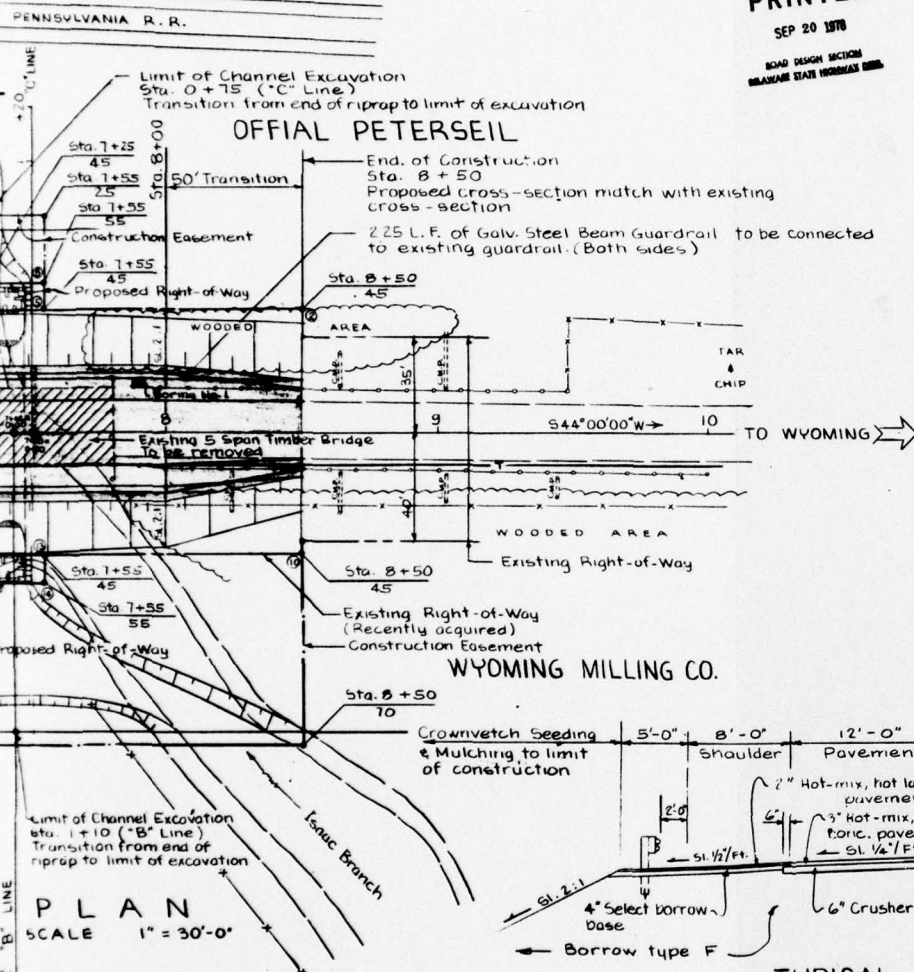 PENNSYLVANIA R. R.
SEP 20 1978
ROAD DESIGN SECTION
DELAWARE STATE HIGHWAY DEPT.
+20
"C" LINE
Limit of Channel Excavation
Sta. 0+75 ("C" Line)
Transition from end of riprap to limit of excavation
OFFIAL PETERSEIL
Sta. 7+25
45
Sta. 7+55
25
Sta 7+55
55
Construction Easement
Sta. 7+55
45
Proposed Right-of-Way
Sta. 8+00
50' Transition
End. of Construction
Sta. 8 + 50
Proposed cross-section match with existing
cross-section
225 L.F. of Galv. Steel Beam Guardrail to be connected
to existing guardrail. (Both sides)
Sta. 8+50
45
2
WOODED AREA
Sl. 2:1
35'
TAR
&
CHIP
Boring No. 1
8
9
S44°00'00"W
10
TO WYOMING
Existing 5 Span Timber Bridge
To be removed
Sl. 2:1
40'
WOODED AREA
Existing Right-of-Way
13
10
Sta. 7+55
45
Sta. 8+50
45
14
Sta. 7+55
55
Existing Right-of-Way
(Recently acquired)
Construction Easement
Proposed Right-of-Way
WYOMING MILLING CO.
Sta. 8 +50
70
Crownvetch Seeding
& Mulching to limit
of construction
5'-0"
8'-0"
Shoulder
12'-0"
Pavemen
2" Hot-mix, hot la
paveme
6"
3" Hot-mix,
2'-0"
Sl. 1/2"/Ft.
Sl. 1/4"/F
Sl. 2:1
4" Select borrow
base
6" Crusher
Borrow type F
Limit of Channel Excavation
Sta. 1+10 ("B" Line)
Transition from end of
riprap to limit of excavation
Isaac Branch
"B" LINE
PLAN
SCALE 1" = 30'-0"